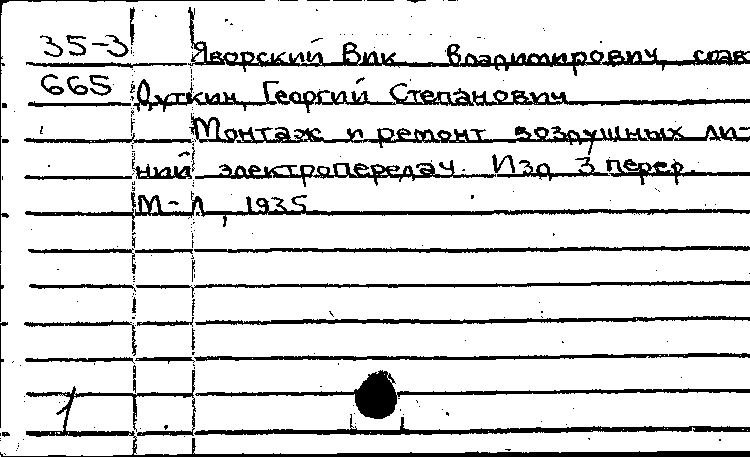 35-3 Яворский Вик Владимирович, слав
665 Дуткин, Георгий Степанович
Монтаж и ремонт воздушных ли-
ний электропередач. Изд 3 перер.
М-Л, 1935
1